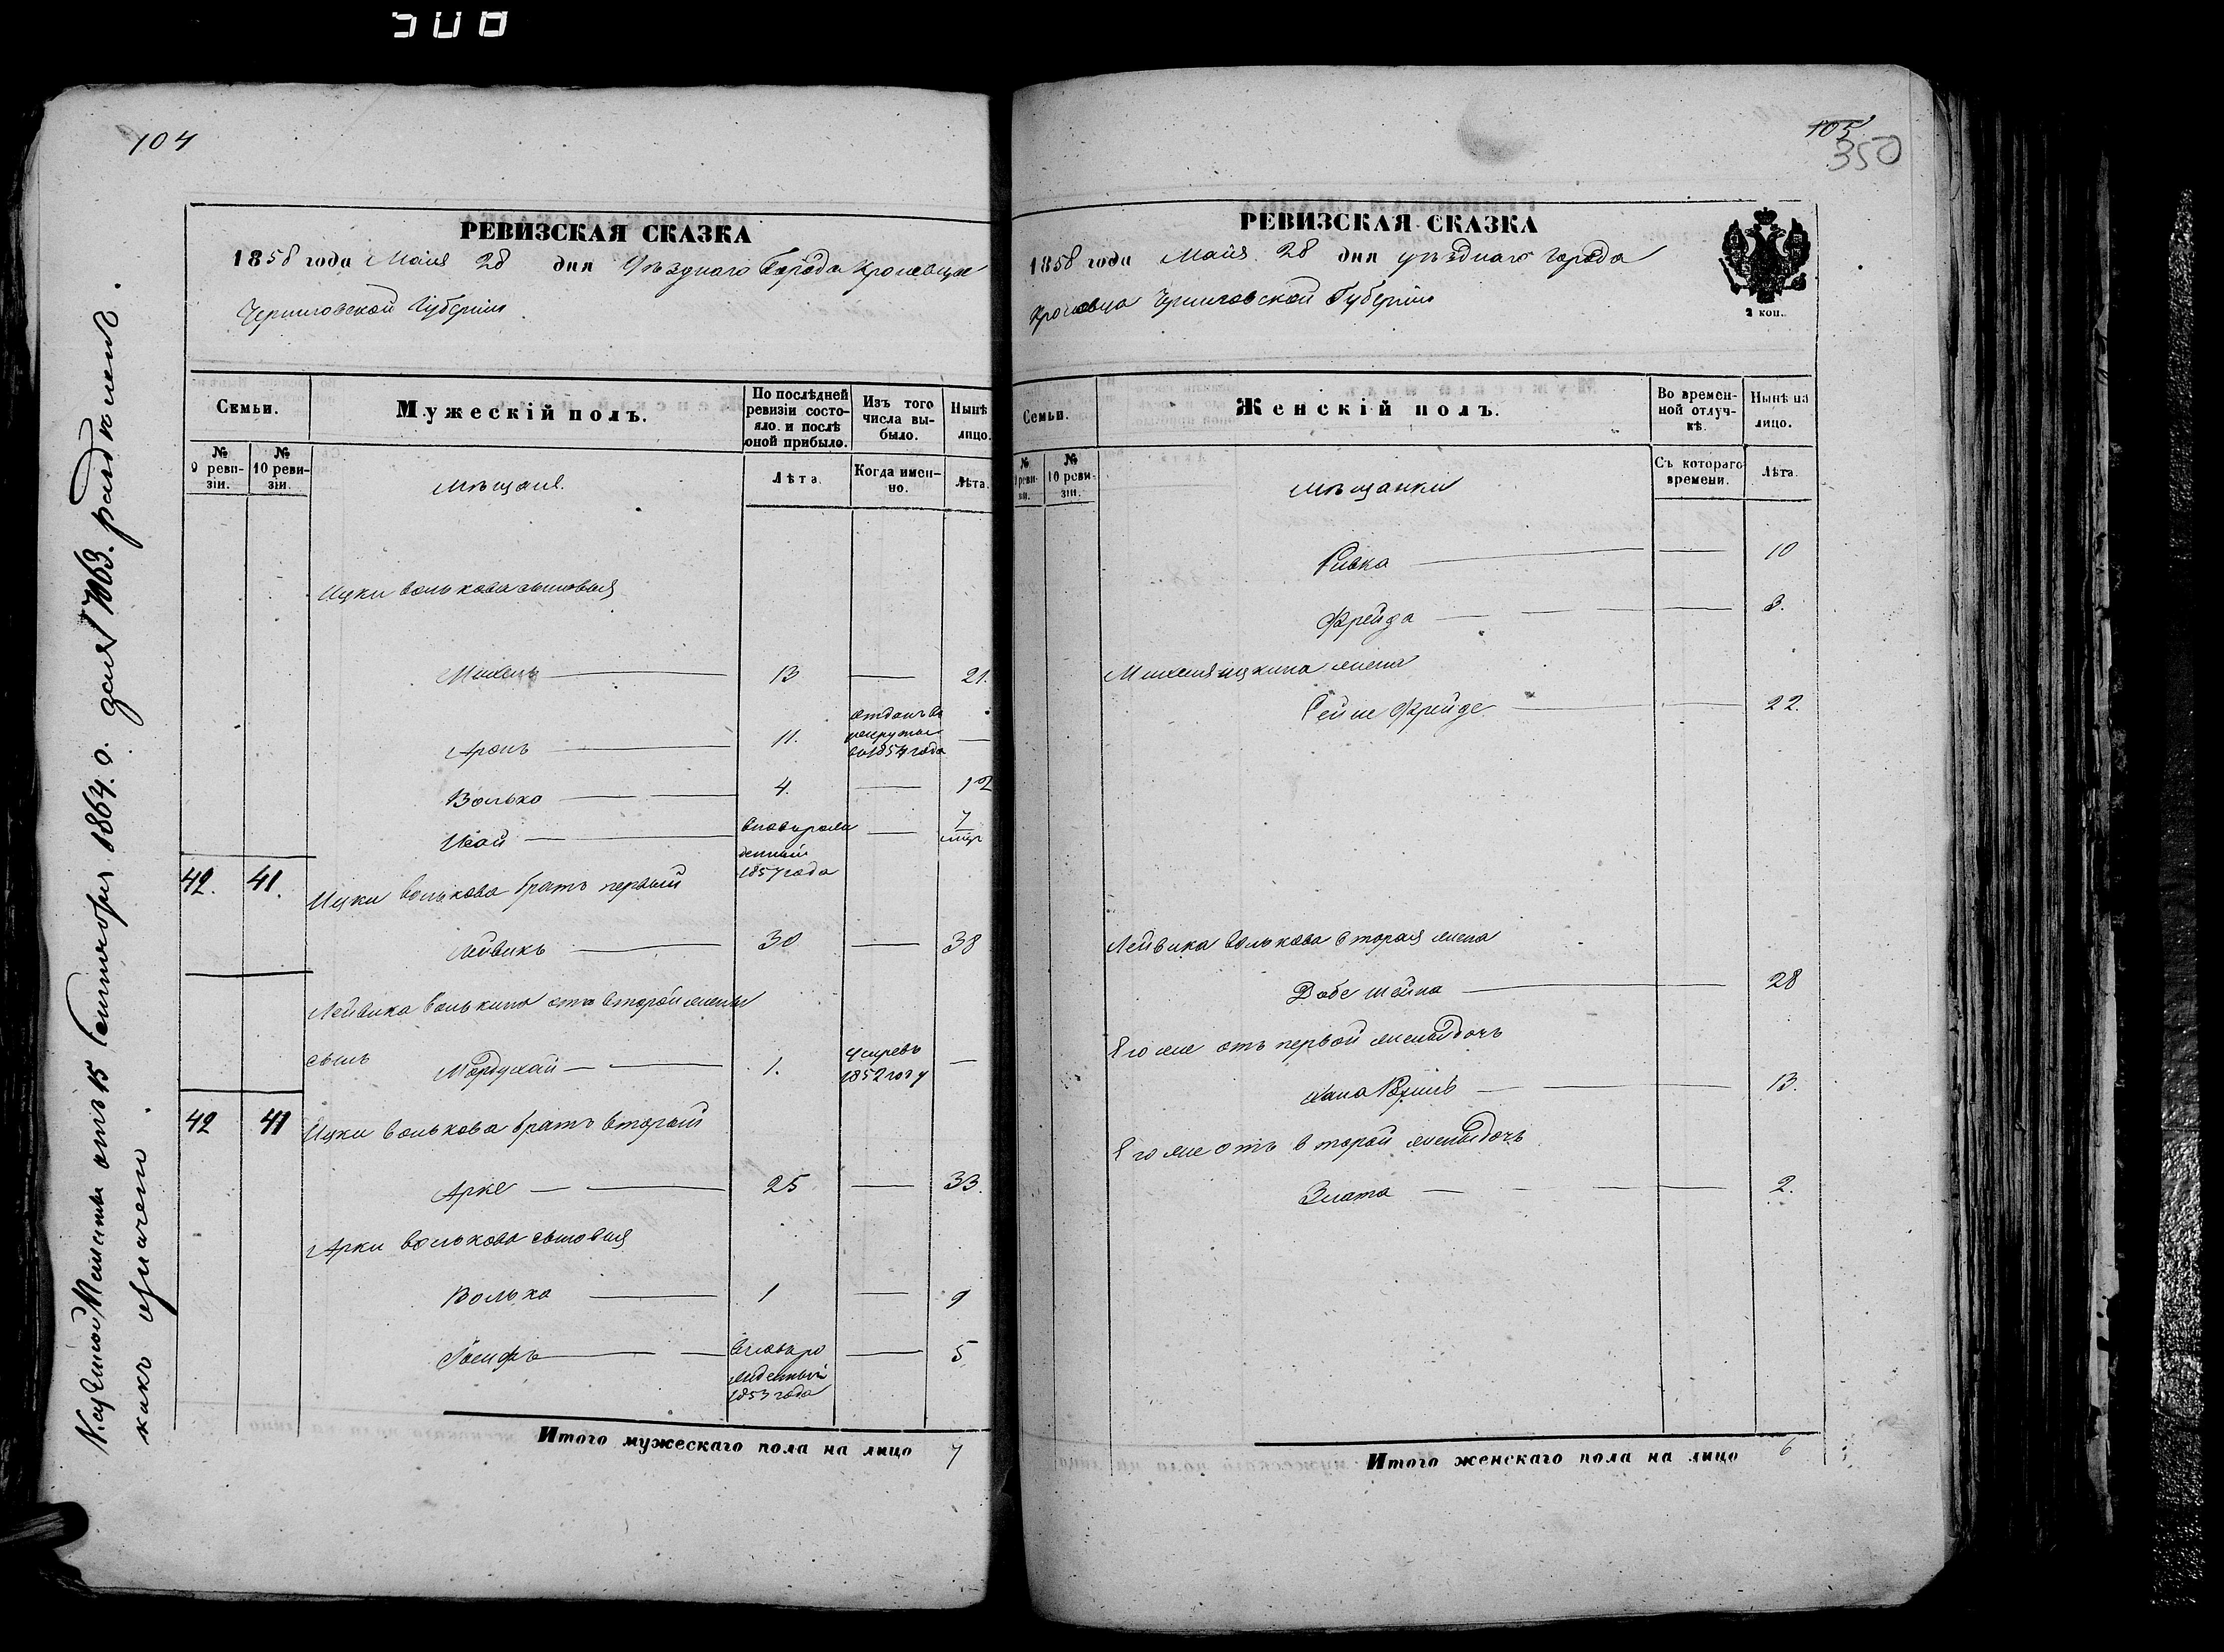 508
104
РЕВИЗСКАЯ СКАЗКА
1858 года Майя 28 дня Уѣзднаго Города Кролевца
Черниговской Губерніи
Семьи.
Мужескій полъ.
По послѣдней ревизіи состояло и послѣ оной прибыло.
Изъ того числа выбыло.
Нынѣ на лицо.
№ 9 ревизіи.
№ 10 ревизіи.
Мѣщане.
Лѣта.
Когда именно.
Лѣта.
Ицки Волькова сыновья
Михель 13 21.
Аронъ 11. отданъ въ рекруты в 1854 года
Волько 4. 12
Исай вновьрожденный 1857 года 7 мѣс
42. 41. Ицки Волькова братъ первый
Лейвикъ 30 38
Лейвика Волькина отъ второй жены
сынъ Мордухай 1. умревъ 1852 году
42 41 Ицки Волькова братъ второй
Арке 25 33.
Арки Волькова сыновья
Волько 1 9
Іосифъ вновьрожденный 1853 года 5
Итого мужескаго пола на лицо 7
отъ 15 Сентября 1864. г. за № 7063.
105
350
РЕВИЗСКАЯ СКАЗКА
1858 года Майя 28 дня уѣзднаго города
Кролевца Черниговской Губерніи
2 коп.
Семьи.
Женскій полъ.
Во временной отлучкѣ.
Нынѣ на лицо.
№ 9 ревизіи.
№ 10 ревизіи.
Мѣщанки
Съ котораго времени.
Лѣта.
Ривка 10
Фрейда 3.
Михеля Ицкина жена
Рейне Фрейде 22.
Лейвика Волькова вторая жена
Добе Шейна 28
Его же отъ первой жены дочь
Хана 13.
Его же отъ второй жены дочь
Злата 2.
Итого женскаго пола на лицо 6